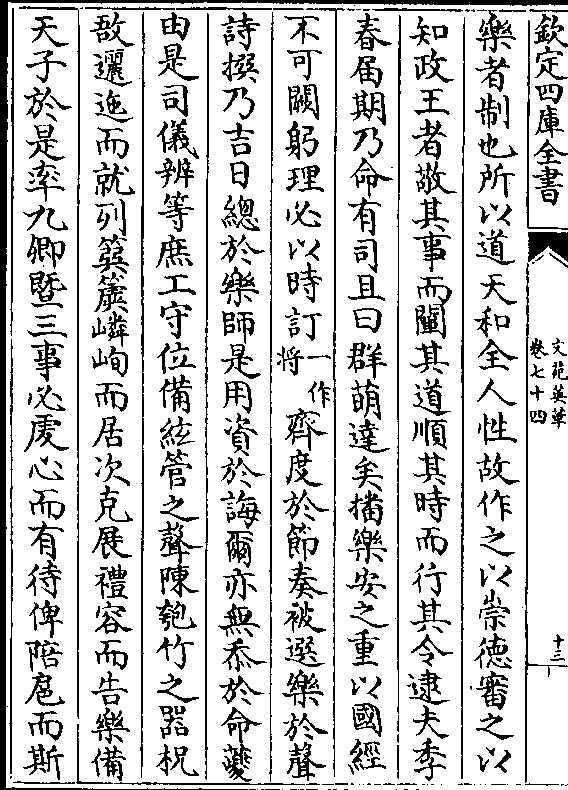 欽定四庫全書
文苑英華
卷七十四
十三
樂者制也所以道天和全人性故作之以崇德審之以
知政王者敬其事而闡其道順其時而行其令逮夫季
春届期乃命有司且曰群萌達矣播樂安之重以國經
不可闕躬理必以時訂一作將齊度於節奏被選樂於聲
詩撰乃吉日總於樂師是用資於誨爾亦無忝於命夔
由是司儀辨等庶工守位備絃管之聲陳匏竹之器柷
敔邐迤而就列簨簴嶙峋而居次克展禮容而告樂備
天子於是率九卿暨三事必虔心而有待俾陪扈而斯